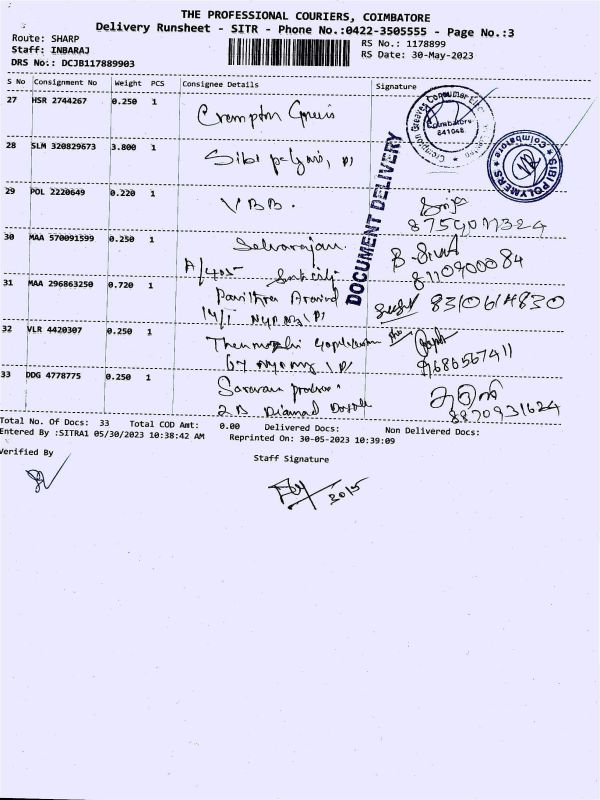 THE PROFESSIONAL COURIERS, COIMBATORE
Delivery Runsheet - SITR - Phone No.:0422-3505555 - Page No.:3
Route: SHARP
Staff: INBARAJ
DRS No.: DCJB117889903
RS No.: 1178899
RS Date: 30-May-2023
S No Consignment No Weight PCS Consignee Details Signature
27 HSR 2744267 0.250 1 Crompton Greaves
28 SLM 320829673 3.800 1 Sibi polymers
29 POL 2220649 0.220 1 VBB.
8759011324
30 MAA 570091599 0.250 1 Selvarajan
A/405
8110900084
31 MAA 296863250 0.720 1 Pavithra Aravind
8310614830
32 VLR 4420307 0.250 1
9686567411
33 DDG 4778775 0.250 1 Saravan
2B Diamad
8870931624
DOCUMENT DELIVERY
Coimbatore
641048.
SIBI POLYMERS
Coimbatore
Total No. Of Docs: 33 Total COD Amt: 0.00 Delivered Docs: Non Delivered Docs:
Entered By :SITRA1 05/30/2023 10:38:42 AM Reprinted On: 30-05-2023 10:39:09
Verified By
Staff Signature
30/5